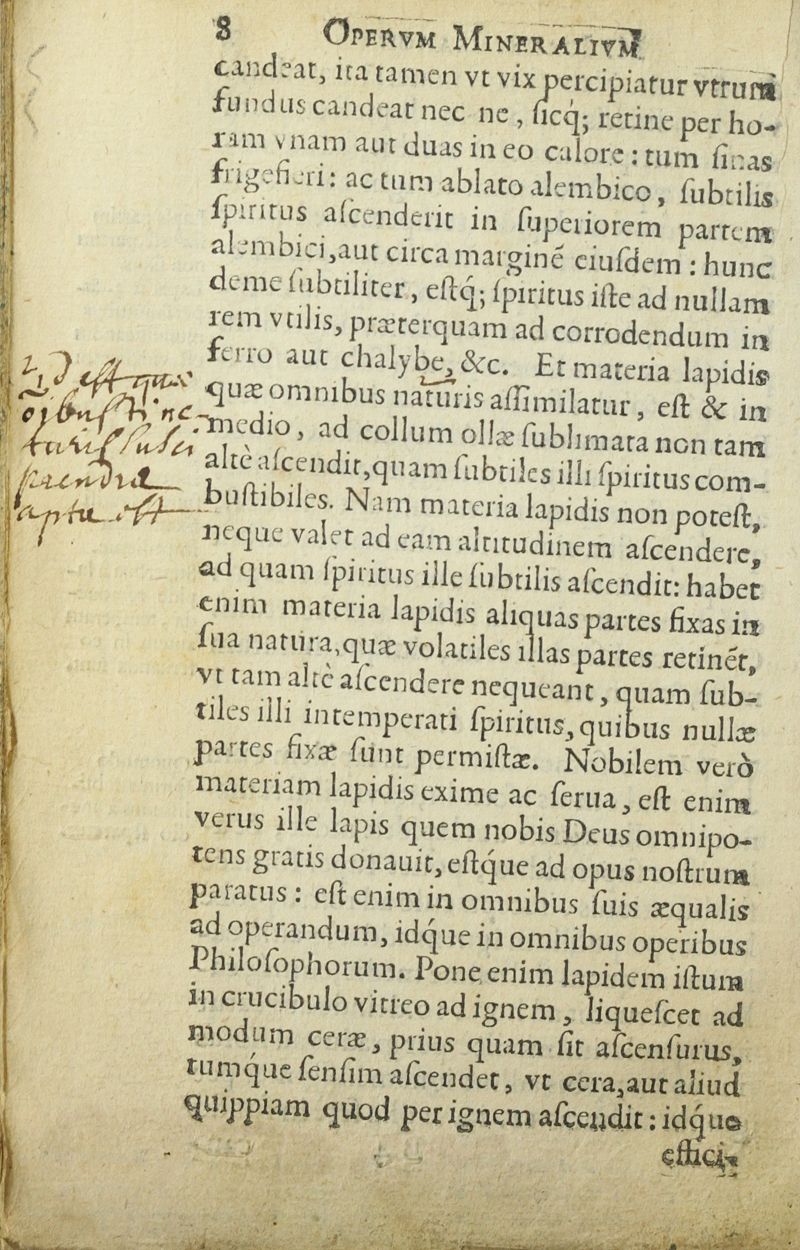 8 OPERVM MINERALIVM
candeat, ita tamen vt vix percipiatur vtrum
fundus candeat nec ne, ſicq́; retine per ho-
ram vnam aut duas in eo calore: tum ſinas
frigefieri: ac tum ablato alembico, ſubtilis
ſpiritus aſcenderit in ſuperiorem partem
alembici, aut circa marginẽ eiuſdem: hunc
deme ſubtiliter, eſtq́; ſpiritus iſte ad nullam
rem vtilis, præterquam ad corrodendum in
ferro aut chalybe, &c. Et materia lapidis
quæ omnibus naturis aſſimilatur, eſt & in
medio, ad collum ollæ ſublimata non tam
altè aſcendit, quam ſubtiles illi ſpiritus com-
buſtibiles. Nam materia lapidis non poteſt,
neque valet ad eam altitudinem aſcendere,
ad quam ſpiritus ille ſubtilis aſcendit: habet
enim materia lapidis aliquas partes fixas in
ſua natura, quæ volatiles illas partes retinẽt,
vt tam altè aſcendere nequeant, quam ſub-
tiles illi intemperati ſpiritus, quibus nullæ
partes fixæ ſunt permiſtæ. Nobilem verò
materiam lapidis exime ac ſerua, eſt enim
verus ille lapis quem nobis Deus omnipo-
tens gratis donauit, eſtq́ue ad opus noſtrum
paratus: eſt enim in omnibus ſuis æqualis
ad operandum, idq́ue in omnibus operibus
Philoſophorum. Pone enim lapidem iſtum
in crucibulo vitreo ad ignem, liqueſcet ad
modum ceræ, prius quam ſit aſcenſurus,
tumque ſenſim aſcendet, vt cera, aut aliud
quippiam quod per ignem aſcendit: idq́ue
effici-